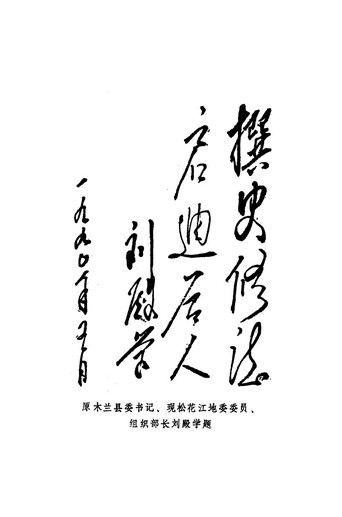 撰史修志
启迪后人
刘殿学
一九九〇年五月
原木兰县委书记、现松花江地委委员、
组织部长刘殿学题